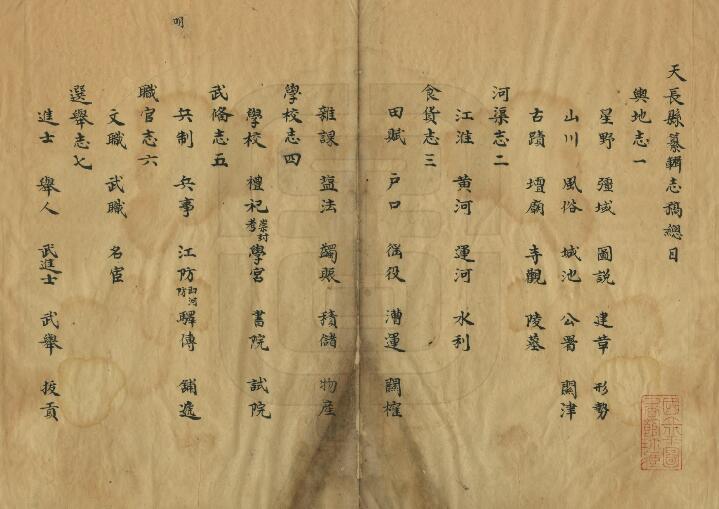 天長縣纂輯志稿總目
輿地志一
星野 疆域 圖説 建革 形勢
山川 風俗 城池 公署 關津
古蹟 壇廟 寺觀 陵墓
河渠志二
江淮 黄河 運河 水利
食貨志三
田賦 户口 徭役 漕運 關榷
雜課 塩法 蠲賑 積儲 物産
學校志四
學校 禮祀 崇封考 學宮 書院 試院
武俻志五
兵制 兵事 江防 河防 驛傳 舖遞
職官志六
文職 武職 名宦
選舉志七
進士 舉人 武進士 武舉 拔貢
明